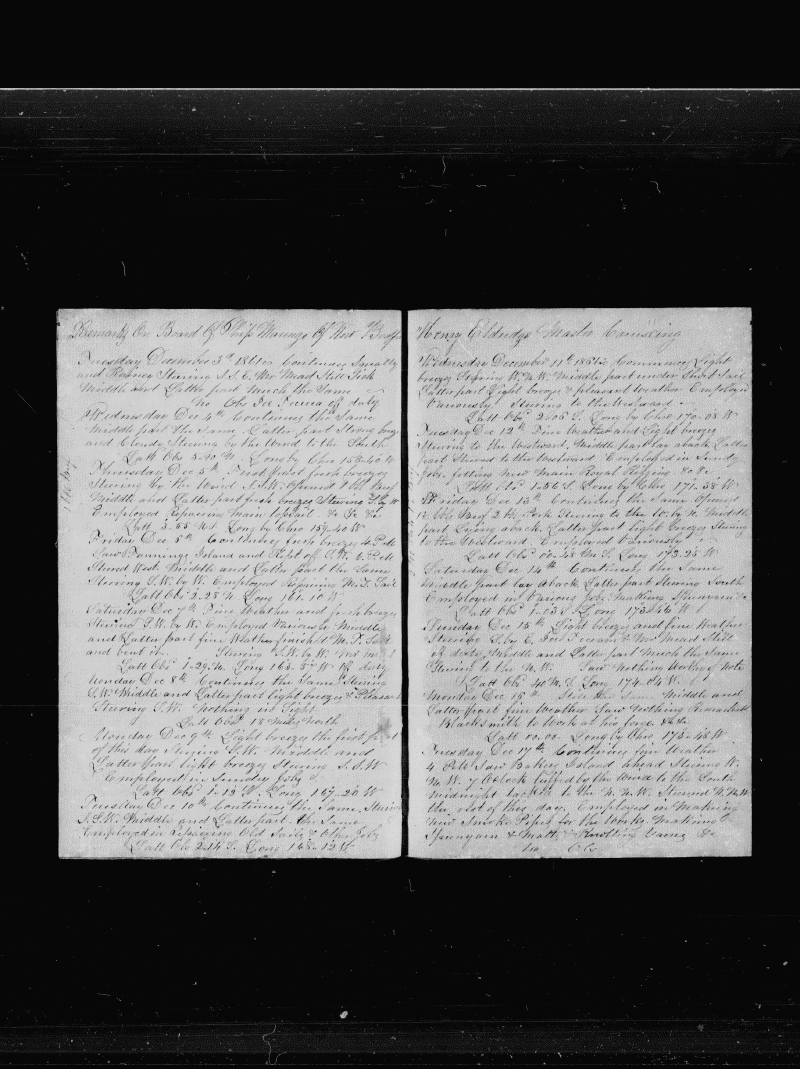 Remarks On Board Of Ship Marengo Of New Bedf
Tuesday December 3th 1861 Continues Squally
and Rainey Stering S.S.E. Mr Mead Still Sick
Middle and Latter part Much the Same
No Obs off duty
Wednesday Dec 4th Continues the Same
Middle part the Same, Latter part Strong breeze
and Cloudy Stering by the Wind to the South
Latt Obs 3-90 N Long by Chro 158-40 W
Thursday Dec 5th First part fresh breezes
Stering by the Wind S.S.W. Opened 1 bbl Beef
Middle and Latter part fresh breezes Stering S.W. by W
Employed Repairing Main topsail &c &c &c
Latt 3.55 N Long by Chro 159-40 W
Friday Dec 5th Continues fresh breezes 4 P.M.
Saw Fannings Island and Kept off S.W. 6 P.M.
Sterd West. Middle and Latter part the Same
Stering S.W. by W. Employed Repairing M.T. Sail
Latt Obs 2-28 N Long 161-10 W
Saturday Dec 7th Fine Weather and fresh breezes
Stering S.W. by W. Employed Variously Middle
and Latter part fine Weather finish't M.T. Sail
and bent it. Stering S.W. by W
Latt Obs 1-29 N. Long 163- W off duty
Sunday Dec 8th Continues the Same Stering
S.W. Middle and Latter part light breezes & Pleasant
Stering S.W. Nothing in Sight
Latt Obs 18 Miles North
Monday Dec 9th Light breezes the first part
of this day Stering S.W. Middle and
Latter part light breezes Stering S.S.W
Employed in Sunday Jobs
Latt Obs 1-12 S. Long 167-20 W
Tuesday Dec 10th Continues the Same. Stering
S.S.W. Middle and Latter part the Same
Employed in repairing Old Sails & Other Jobs
Latt Obs 2-14 S. Long 168-12 W
Henry Eldridge Master Cruising
Wednesday December 11th 1861 Commences Light
breezes Stering W.N.W. Middle part under Short Sail
Latter part Light breezes & pleasant Weather Employed
Variously Stering to the Westward
Latt Obs 2-05 S. Long by Chro 170-03 W
Thursday Dec 12th Fine Weather and Light breezes
Stering to the Westward. Middle part lay aback Latter
part Sterred to the Westward. Employed in Sundry
Jobs. fitting New Main Royal Rigging &c &c
Latt Obs 1-56 S. Long by Chro 171-38 W
Friday Dec 13th Continues the Same Opened
Beef 2 Pork Stering to the W. by N. Middle
part Lying aback. Latter part light breezes Stering
to the Westward. Employed Variously
Latt Obs 00-48 M.S. Long 173-25 W
Saturday Dec 14th Continues the Same
Middle part lay aback Latter part Stering South
Employed in Various Jobs Making Spunyarn &c
Latt Obs 1-03 S Long 173-46 W
Sunday Dec 15th Light breezes and fine Weather
Stering S. by E. Mr Mead Still
off duty. Middle and Latter part Much the Same
Stering to the N.W. Saw Nothing Worthy Note
Latt Obs 40 M.S. Long 174.04 W.
Monday Dec 16th the Same Middle and
Latter part fine Weather Saw Nothing Remarkable
Blacksmith to Work at his forge &c &c
Latt 00.00. Long by Chro 175-48 W
Tuesday Dec 17th Continues fine Weather
4 P.M. Saw Bakers Island ahead Stering W.
N.W. 7 Oclock luffed by the Wind to the South
Midnight tacked to the N.N.W. Sterred W.N.W
the rest of this day. Employed in Making
New Smoke Pipes for the Works. Making
Spunyarn & Matts, Knotting Yarns &c
No Obs